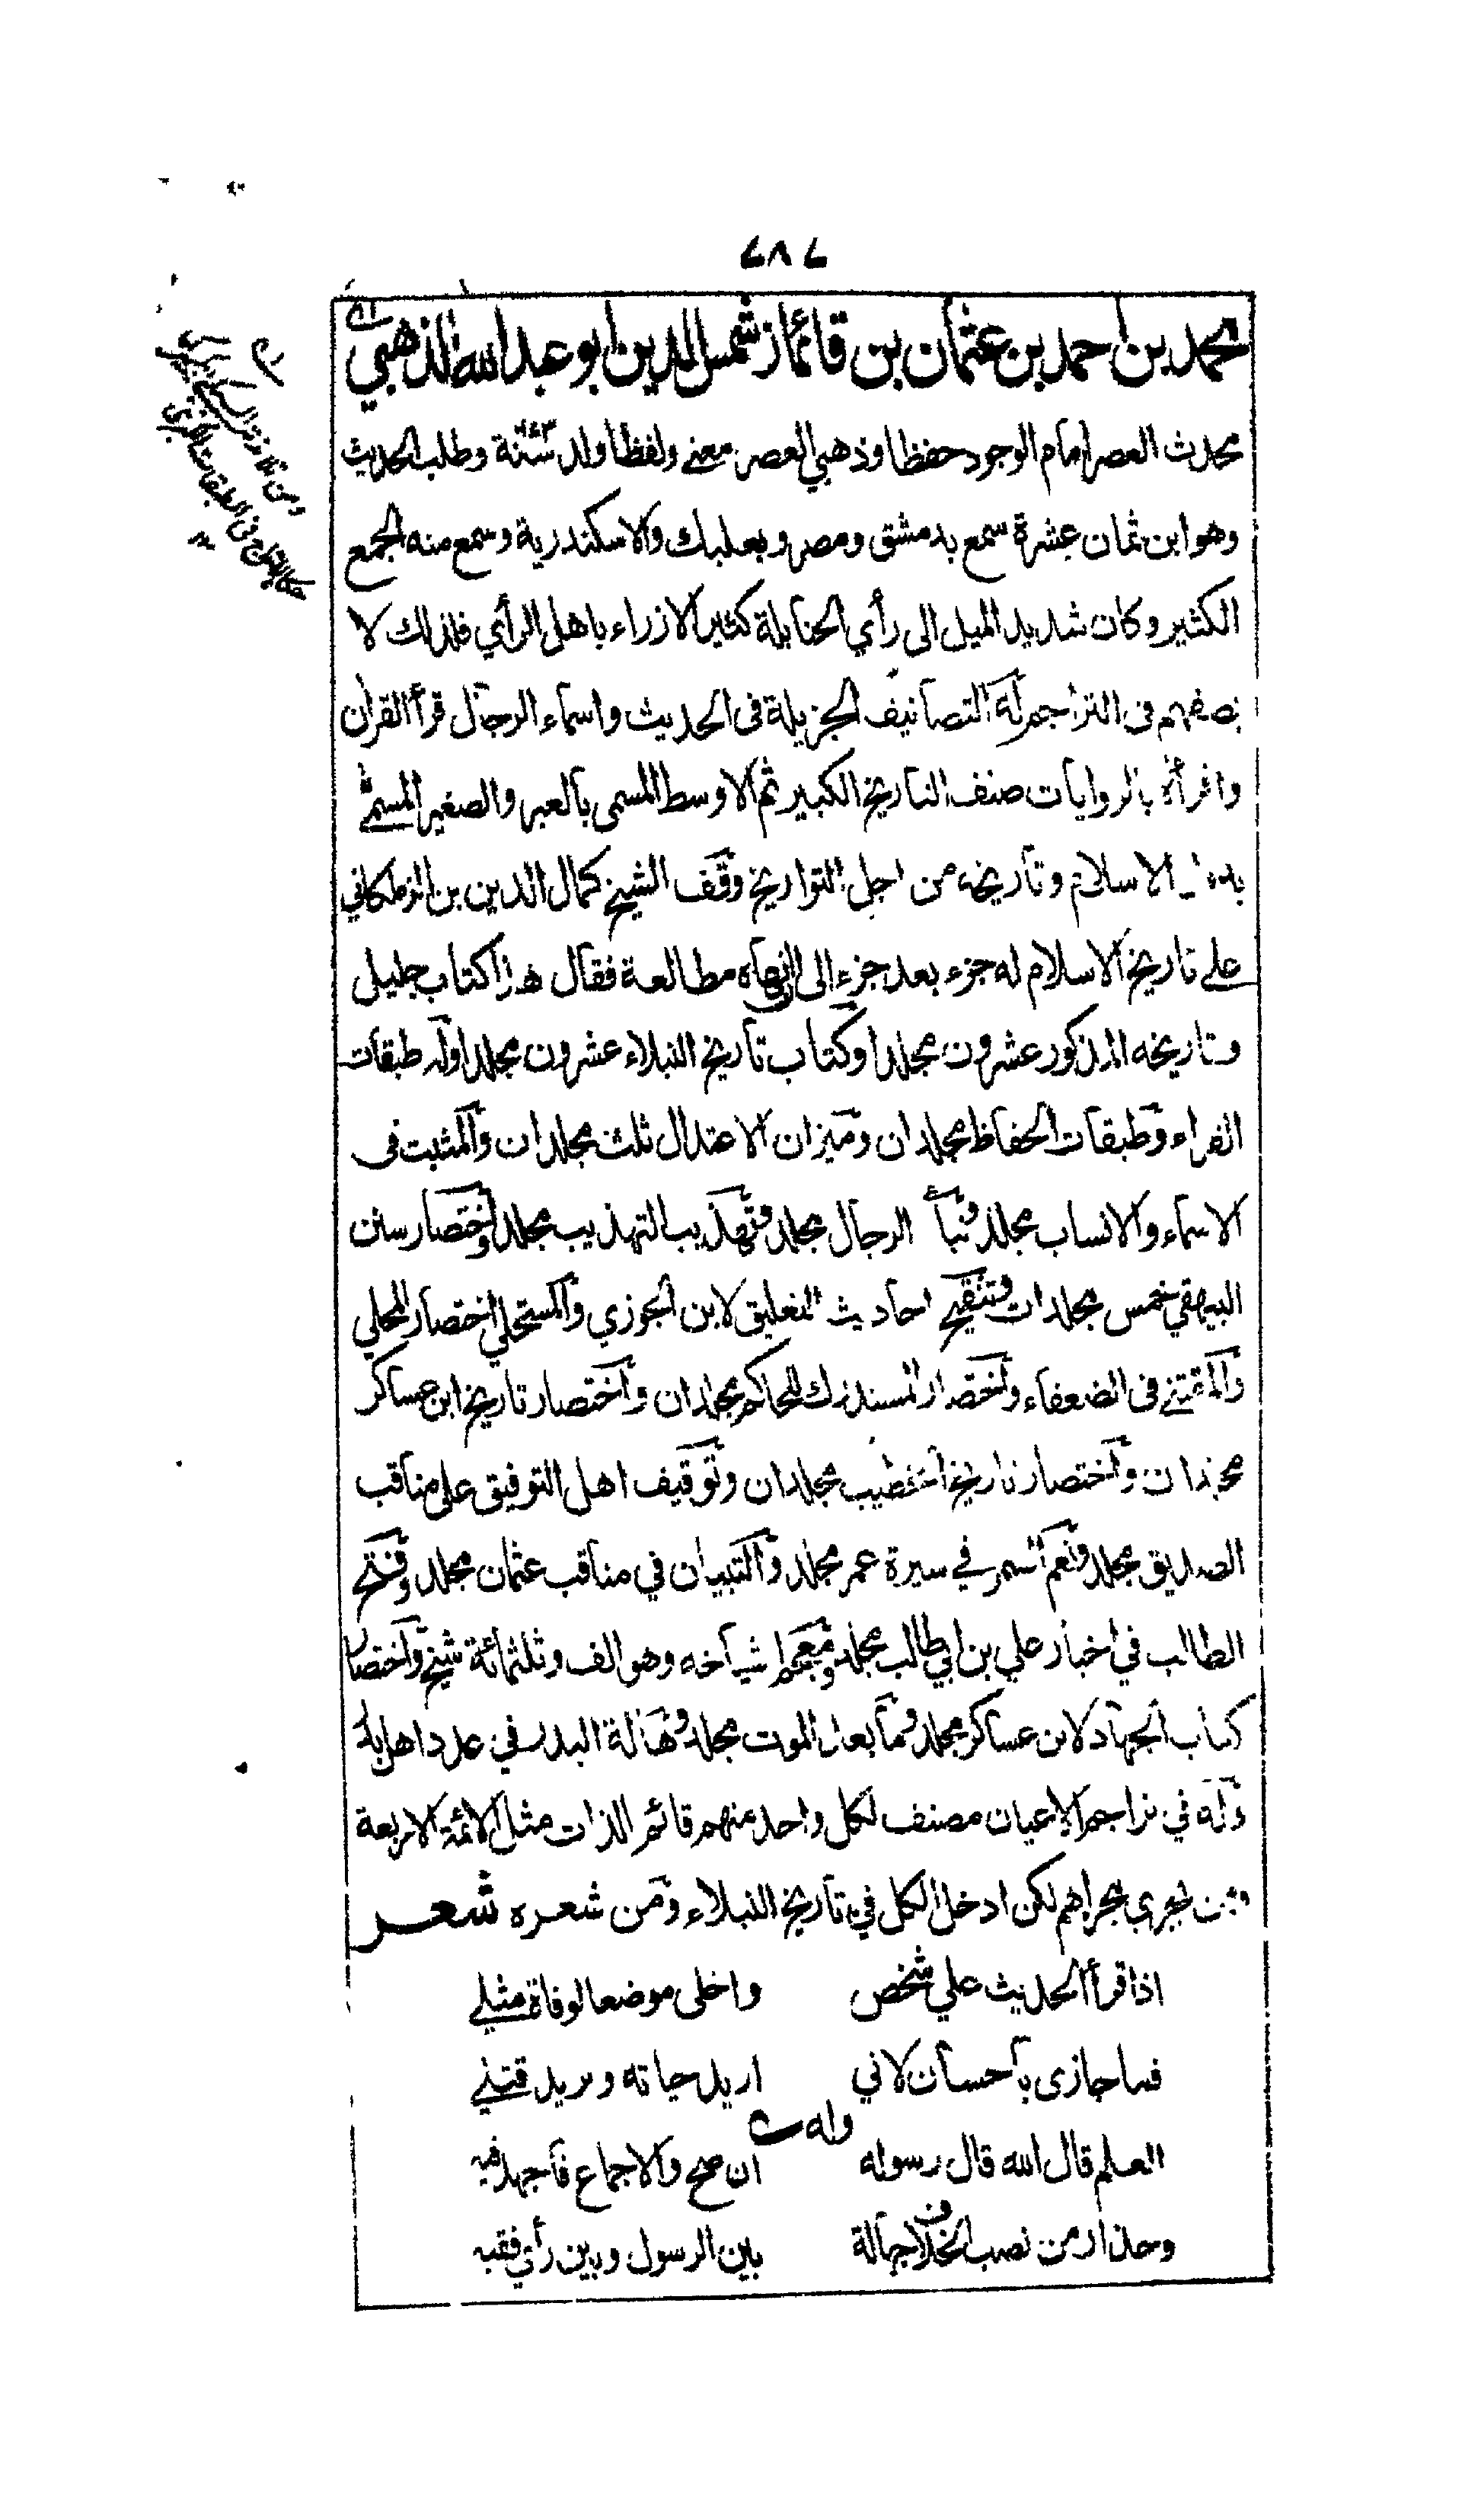 ٧٨٧
محمد بن احمد بن عثمان بن قائماز شمس الدين ابو عبد الله الذهبي
محدث العصر امام الوجود حفظا وذهبي العصر معنى ولفظا ولد سنة ٦٧٣ وطلب الحديث
وهو ابن ثمان عشرة سمع بدمشق ومصر وبعلبك والاسكندرية وسمع منه الجمع
الكثير وكان شديد الميل الى رأي الحنابلة كثير الازراء باهل الرأي فلذلك لا
ينصفهم في التراجم له التصانيف الجزيلة في الحديث واسماء الرجال قرأ القران
واقرأه بالروايات صنف التاريخ الكبير ثم الاوسط المسمى بالعبر والصغير المسمى
الاسلام وتاريخه من اجل التواريخ وقف الشيخ كمال الدين بن الزملكاني
على تاريخ الاسلام له جزء بعد جزء الى ان انهاه مطالعة فقال هذا كتاب جليل
وتاريخه المذكور عشرون مجلدا وكتاب تاريخ النبلاء عشرون مجلدا وله طبقات
القراء وطبقات الحفاظ مجلدان وميزان الاعتدال ثلث مجلدان والمثبت في
الاسماء والانساب مجلد ونبأ الرجال مجلد وتهذيب التهذيب مجلد واختصار سنن
البيهقي خمس مجلدات وتنقيح احاديث التعليق لابن الجوزي والمستحلي اختصار المحلي
والمقتنى في الضعفاء واختصار المستدرك للحاكم مجلدان واختصار تاريخ ابن عساكر
مجلدان واختصار تاريخ الخطيب مجلدان وتوقيف اهل التوفيق على مناقب
الصديق مجلد ونعم السمر في سيرة عمر مجلد والتبيان في مناقب عثمان مجلد وفتح
الطالب في اخبار علي بن ابي طالب مجلد ومعجم اشياخه وهو الف وثلثمائة شيخ واختصار
كتاب الجهاد لابن عساكر مجلد وما بعد الموت مجلد وهالة البدر في عدد اهل بدر
وله في تراجم الاعيان مصنف لكل واحد منهم قائم الذات مثل الائمة الاربعة
ومن يجري مجراهم لكن ادخل الكل في تاريخ النبلاء ومن شعره شعر
اذا قرأ الحديث علي شخص واخلى موضعا لوفاة مثلي
فما جازى باحسان لاني اريد حياته ويريد قتلي
وله
العلم قال الله قال رسوله ان صح والاجماع فاجهد فيه
وحذار من نصب الخلاف جهالة بين الرسول وبين رأي فقيه